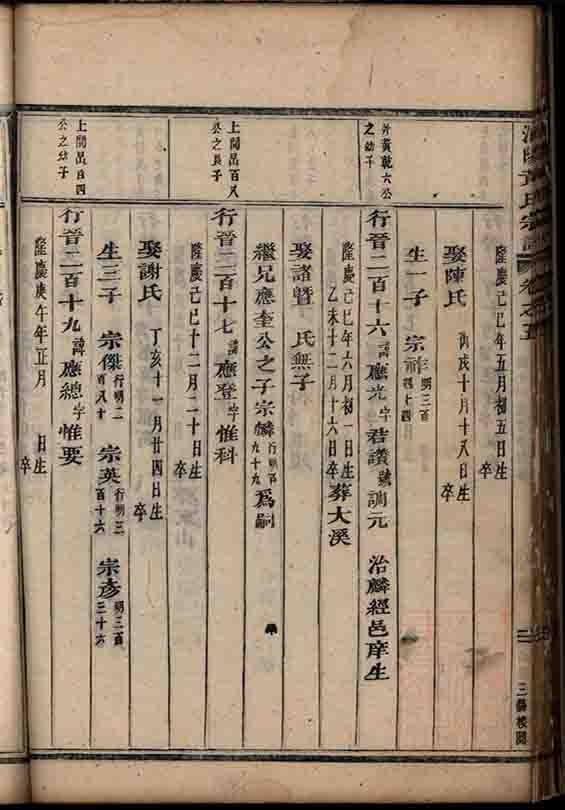 隆慶己巳年五月初五日生
卒
娶陳氏 丙戌十月十八日生
卒
生一子 宗祥 明三百
四七四
上開乾六公
之幼子
行晉二百十六 諱應光 字君讚 號調元 治麟經邑庠生
隆慶己巳年六月初一日生
乙未十二月十六日卒 葬大溪
娶諸暨 氏無子
繼兄應奎公之子宗麟 行明百
九十九 爲嗣
上開昌百八
公之長子
行晉二百十七 諱應登 字惟科
隆慶己巳十二月二十日生
卒
娶謝氏 丁亥十一月廿四日生
卒
生三子 宗傑 行明二
百八十 宗英 行明三
百十六 宗彥 明三百
三十六
上開昌百四
公之幼子
行晉二百十九 諱應總 字惟要
隆慶庚午年正月 日生
卒
氏宗譜
卷之五
三儀校閱